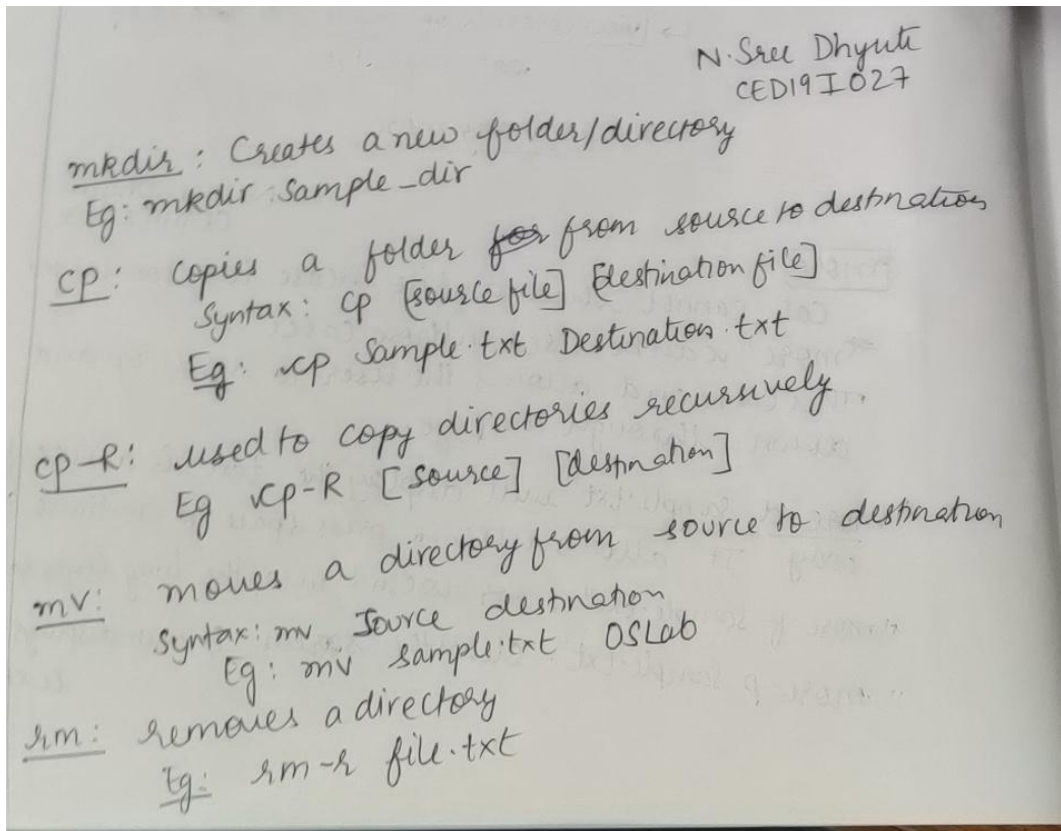 N. Sree Dhyuti
CED19I027
mkdir : Creates a new folder/directory
Eg: mkdir sample_dir
cp : copies a folder from source to destination
Syntax: cp [source file] [destination file]
Eg: cp Sample.txt Destination.txt
cp-R: used to copy directories recursively
Eg cp-R [source] [destination]
mv: moves a directory from source to destination
Syntax: mv Source destination
Eg: mv sample.txt OSLab
rm: removes a directory
Eg: rm-r file.txt